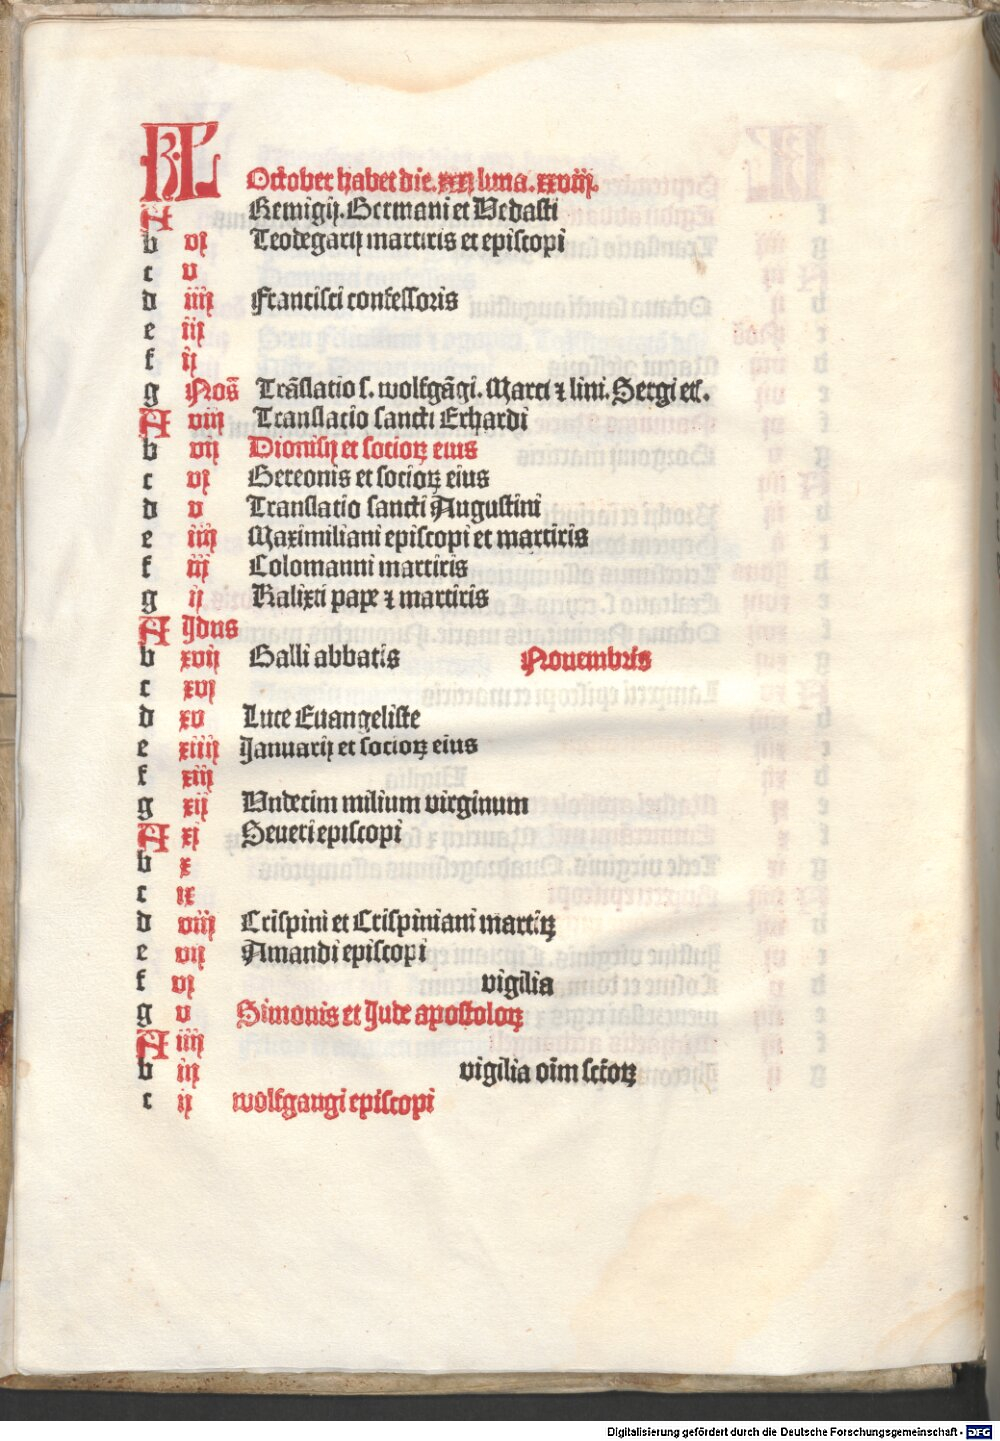 KL
October habet die. xxxj luna. xxviij.
A Remigij. Germani et Vedasti
b vj Leodegarij martiris et episcopi
c v
d iiij Francisci confessoris
e iij
f ij
g Nos̄ Trāslatio s. wolfgāgi. Marci ⁊ lini. Sergi etc̄.
A viij Translatio sancti Erhardi
b vij Dionisij et socioꝝ eius
c vj Gereonis et socioꝝ eius
d v Translatio sancti Augustini
e iiij Maximiliani episcopi et martiris
f iij Colomanni martiris
g ij Kalixti pape ⁊ martiris
A Jdus
b xvij Galli abbatis Nouembris
c xvj
d xv Luce Euangeliste
e xiiij Januarij et socioꝝ eius
f xiij
g xij Vndecim milium virginum
A xj Seueri episcopi
b x
c ix
d viij Crispini et Crispiniani martiꝝ
e vij Amandi episcopi
f vj vigilia
g v Simonis et Jude apostoloꝝ
A iiij
b iij vigilia oīm sctōꝝ
c ij wolfgangi episcopi
Digitalisierung gefördert durch die Deutsche Forschungsgemeinschaft - DFG